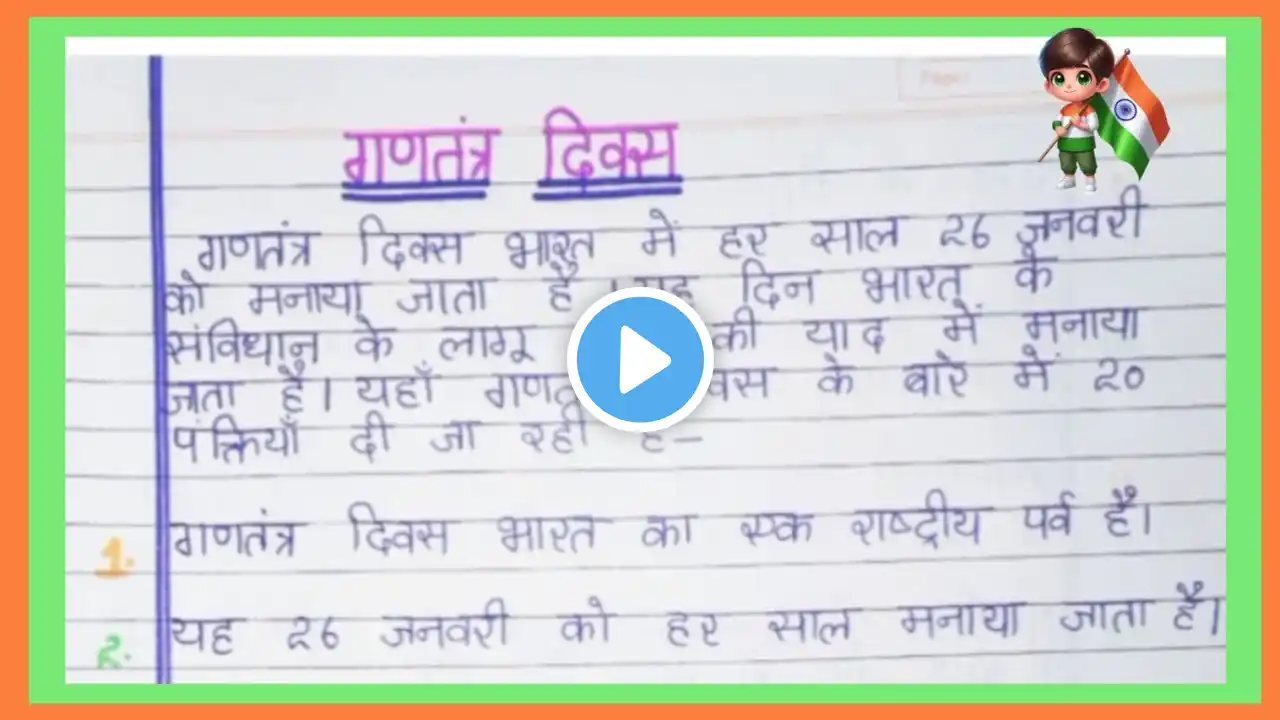 गणतंत्र दिवस
गणतंत्र दिवस भारत में हर साल 26 जनवरी
को मनाया जाता है। यह दिन भारत के
संविधान के लागू की याद में मनाया
जाता है। यहाँ के बारे में 20
पंक्तियाँ दी जा रही है–
1. गणतंत्र दिवस भारत का एक राष्ट्रीय पर्व है।
2. यह 26 जनवरी को हर साल मनाया जाता है।